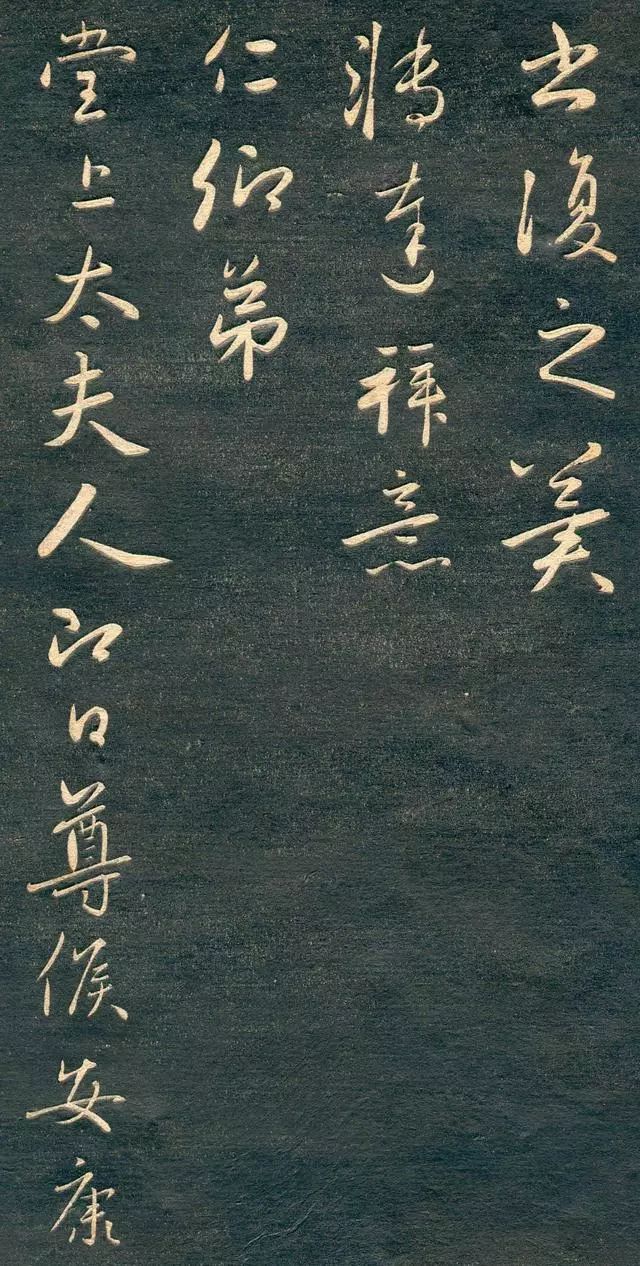 復之美
轉達拜意
仁卿弟
堂上太夫人即日尊候安康